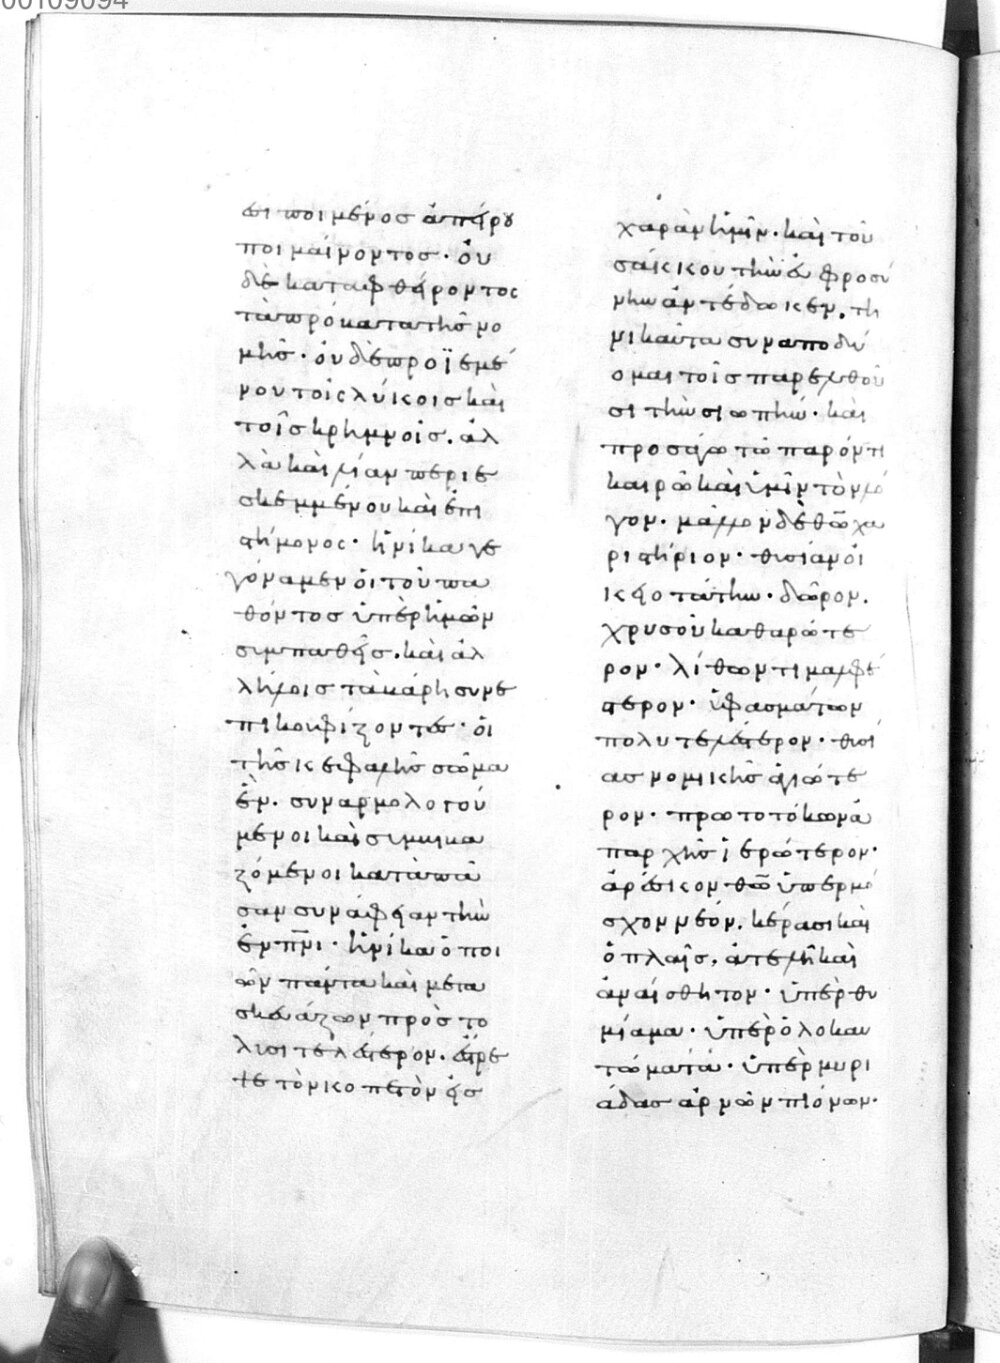 00109094
ὡι ποιμένοσ ἀπείρου
ποιμαίνοντοσ· οὐ
δὲ καταφθείροντος
τὰ πρόβατα τῆσ νο
μῆσ· οὐδὲ προϊεμέ
νου τοῖς λύκοισ καὶ
τοῖσ κρημνοῖσ. ἀλ
λὰ καὶ λίαν περιε
σκεμμένου καὶ ἐπι
στήμονος· ἡνίκα γε
γόναμεν οἱ τοῦ πα
θόντοσ ὑπὲρ ἡμῶν
συμπαθεῖσ. καὶ ἀλ
λήλοισ τὰ βάρη συνε
πικουφίζοντεσ· οἱ
τῆσ κεφαλῆσ σῶμα
ἓν. συναρμολογού
μενοι καὶ συμβιβα
ζόμενοι κατὰ πᾶ
σαν συνάφειαν τὴν
ἐν πνι· ἡνίκα ὁ ποι
ῶν πάντα καὶ μετα
σκευάζων πρὸσ τὸ
λυσιτελέστερον. διέρρη
ξε τὸν κοπετὸν εἰσ
χαρὰν ἡμῖν. καὶ τοῦ
σάκκου τὴν εὐφροσύ
νην ἀντέδωκεν. τη
νικαῦτα συναποδύ
ομαι τοῖσ παρελθοῦ
σι τὴν σιωπήν· καὶ
προσάγω τῶ παρόντι
καιρῶ καὶ ὑμῖν τὸν λό
γον. μᾶλλον δὲ θῶ χα
ριστήριον· θυσίαν οἱ
κειοτάτην· δῶρον.
χρυσοῦ καθαρώτε
ρον· λίθων τιμαλφέ
στερον· ὑφασμάτων
πολυτελέστερον· θυσί
ασ νομικῆσ ἁγιώτε
ρον· πρωτοτόκων ἀ
παρχῆσ ἱερώτερον·
ἀρέσκον θῶ ὑπὲρ μό
σχον νέον. κέρασι καὶ
ὁπλαῖσ, ἀτελῆ καὶ
ἀναίσθητον· ὑπὲρ θυ
μίαμα· ὑπὲρ ὁλοκαυ
τώματα· ὑπὲρ μυρι
άδασ ἀρνῶν πιόνων·